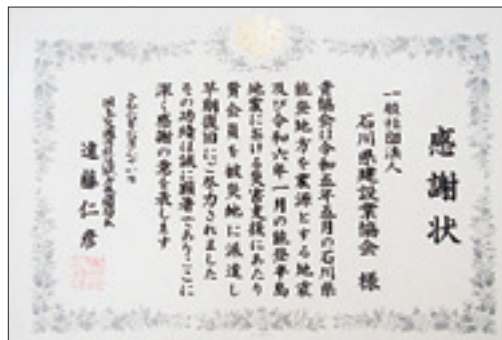 感謝状
一般社団法人
石川県建設業協会 様
貴協会は令和五年五月の石川県
能登地方を震源とする地震
及び令和六年一月の能登半島
地震における災害支援にあたり
貴会員を被災地に派遣し
早期復旧にご尽力されました
その功績は誠に顕著でありここに
深く感謝の意を表します
遠藤仁彦